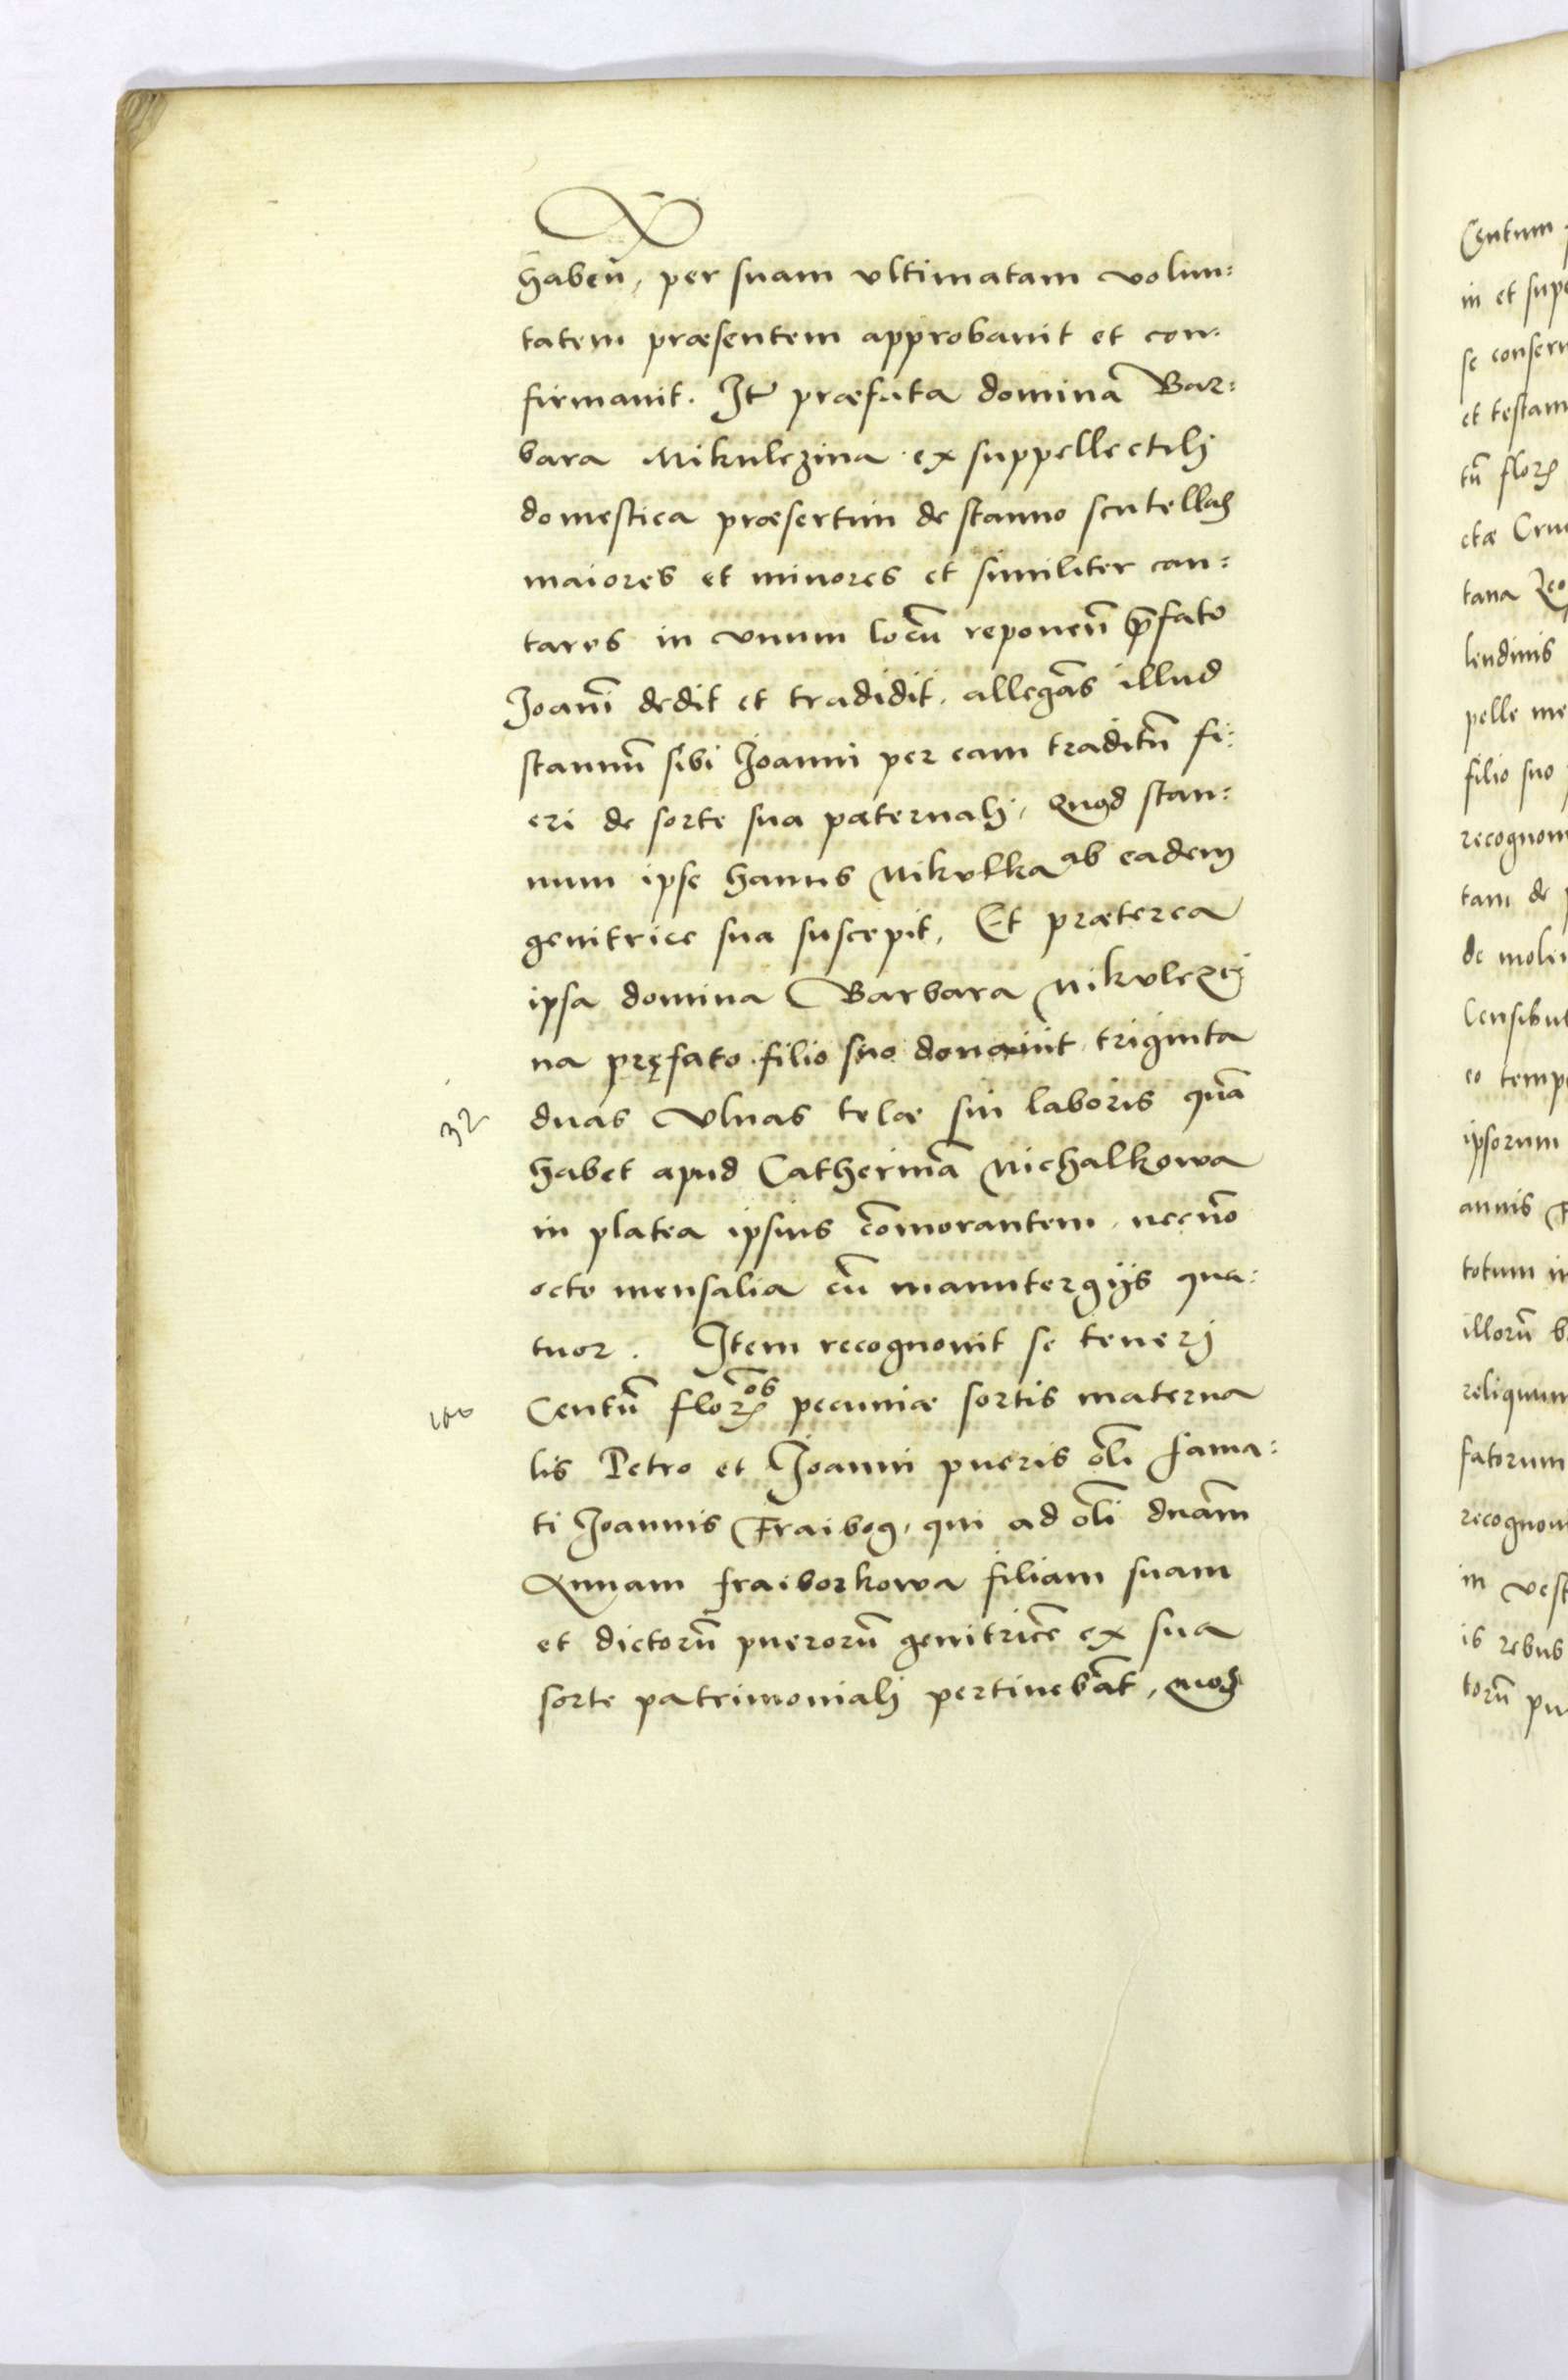 habeñ, per suam vltimatam volun:
tatem præsentem approbauit et con:
firmauit. Itē præfata domina Bar:
bara Mikulczina ex suppellectilj
domestica præsertim de stanno scutellas
maiores et minores et similiter can:
taros in vnum locū reponeñ p̄fato
Joani dedit et tradidit, allegās illud
stannū sibi Joanni per eam traditū fi:
eri de sorte sua paternalj, Quod stan:
num ipse Hanus Mikvlka ab eadem
genitrice sua suscepit, Et præterea
ipsa domina Barbara Mikvlczi
na pręfato filio suo donauit triginta
32 duas Vlnas telæ sui laboris quā
habet apud Catherinā Michalkowa
in platea ipsius cōmorantem, necnō
octo mensalia cū manutergijs qua:
tuor. Item recognouit se tenerj
100 Centū floros pecuniæ sortis materna
lis Petro et Joanni pueris oli fama:
ti Joannis Fraibog, qui ad oli dnam
Annam fraiborkowa filiam suam
et dictorū puerorū genitricē ex sua
sorte patrimonialj pertinebāt, quos
Centum
in et supe
se conseru
et testam
tū flor
ctæ Cruc
tana
lendinis
pelle me
filio suo
recognou
tam de p
de molen
Censibus
eo temp
ipsorum
annis
totum in
illorū b
reliquum
fatorum
recognou
in vest
is rebus
torū pu